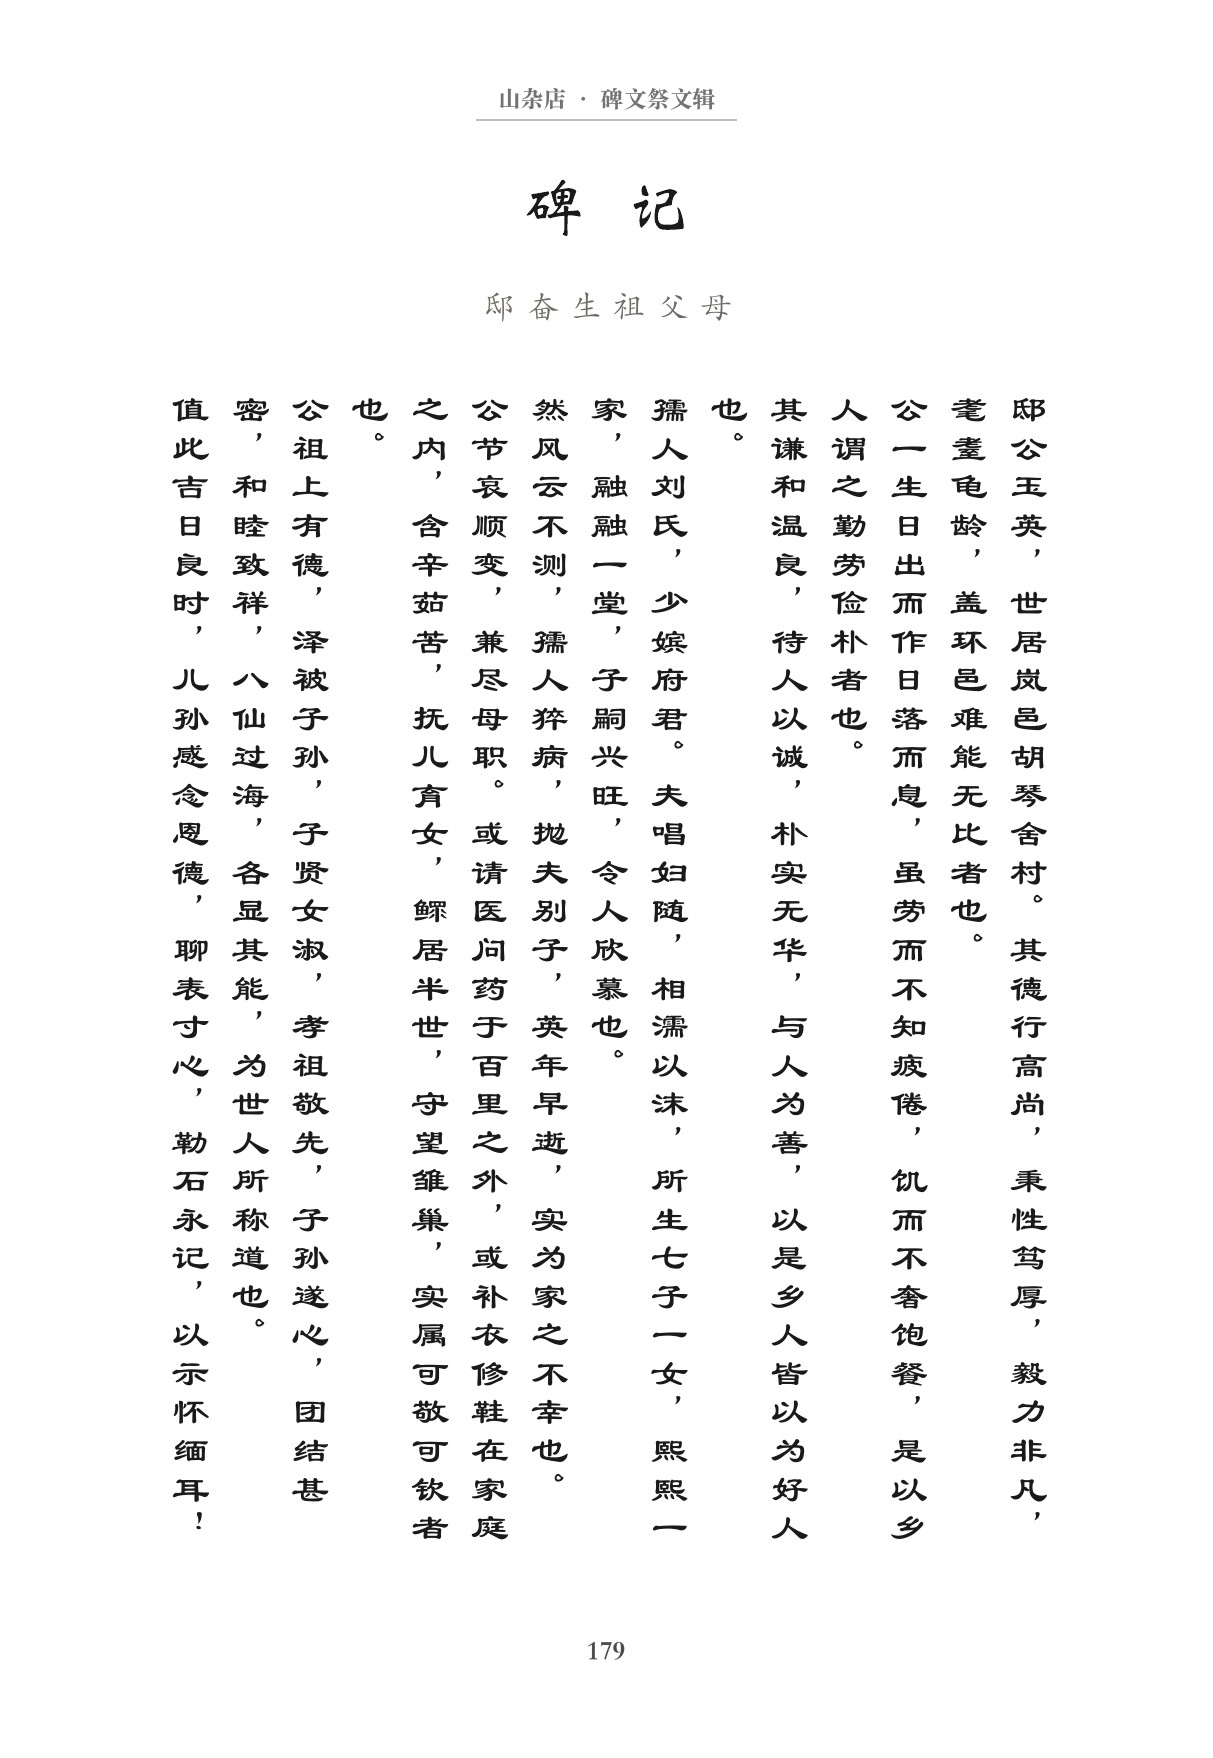 山杂店 · 碑文祭文辑
碑 记
邸奋生祖父母
邸公玉英，世居岚邑胡琴舍村。其德行高尚，秉性笃厚，毅力非凡，
耄耋龟龄，盖环邑难能无比者也。
公一生日出而作日落而息，虽劳而不知疲倦，饥而不奢饱餐，是以乡
人谓之勤劳俭朴者也。
其谦和温良，待人以诚，朴实无华，与人为善，以是乡人皆以为好人
也。
孺人刘氏，少嫔府君。夫唱妇随，相濡以沫，所生七子一女，熙熙一
家，融融一堂，子嗣兴旺，令人欣慕也。
然风云不测，孺人猝病，抛夫别子，英年早逝，实为家之不幸也。
公节哀顺变，兼尽母职。或请医问药于百里之外，或补衣修鞋在家庭
之内，含辛茹苦，抚儿育女，鳏居半世，守望雏巢，实属可敬可钦者
也。
公祖上有德，泽被子孙，子贤女淑，孝祖敬先，子孙遂心，团结甚
密，和睦致祥，八仙过海，各显其能，为世人所称道也。
值此吉日良时，儿孙感念恩德，聊表寸心，勒石永记，以示怀缅耳！
179